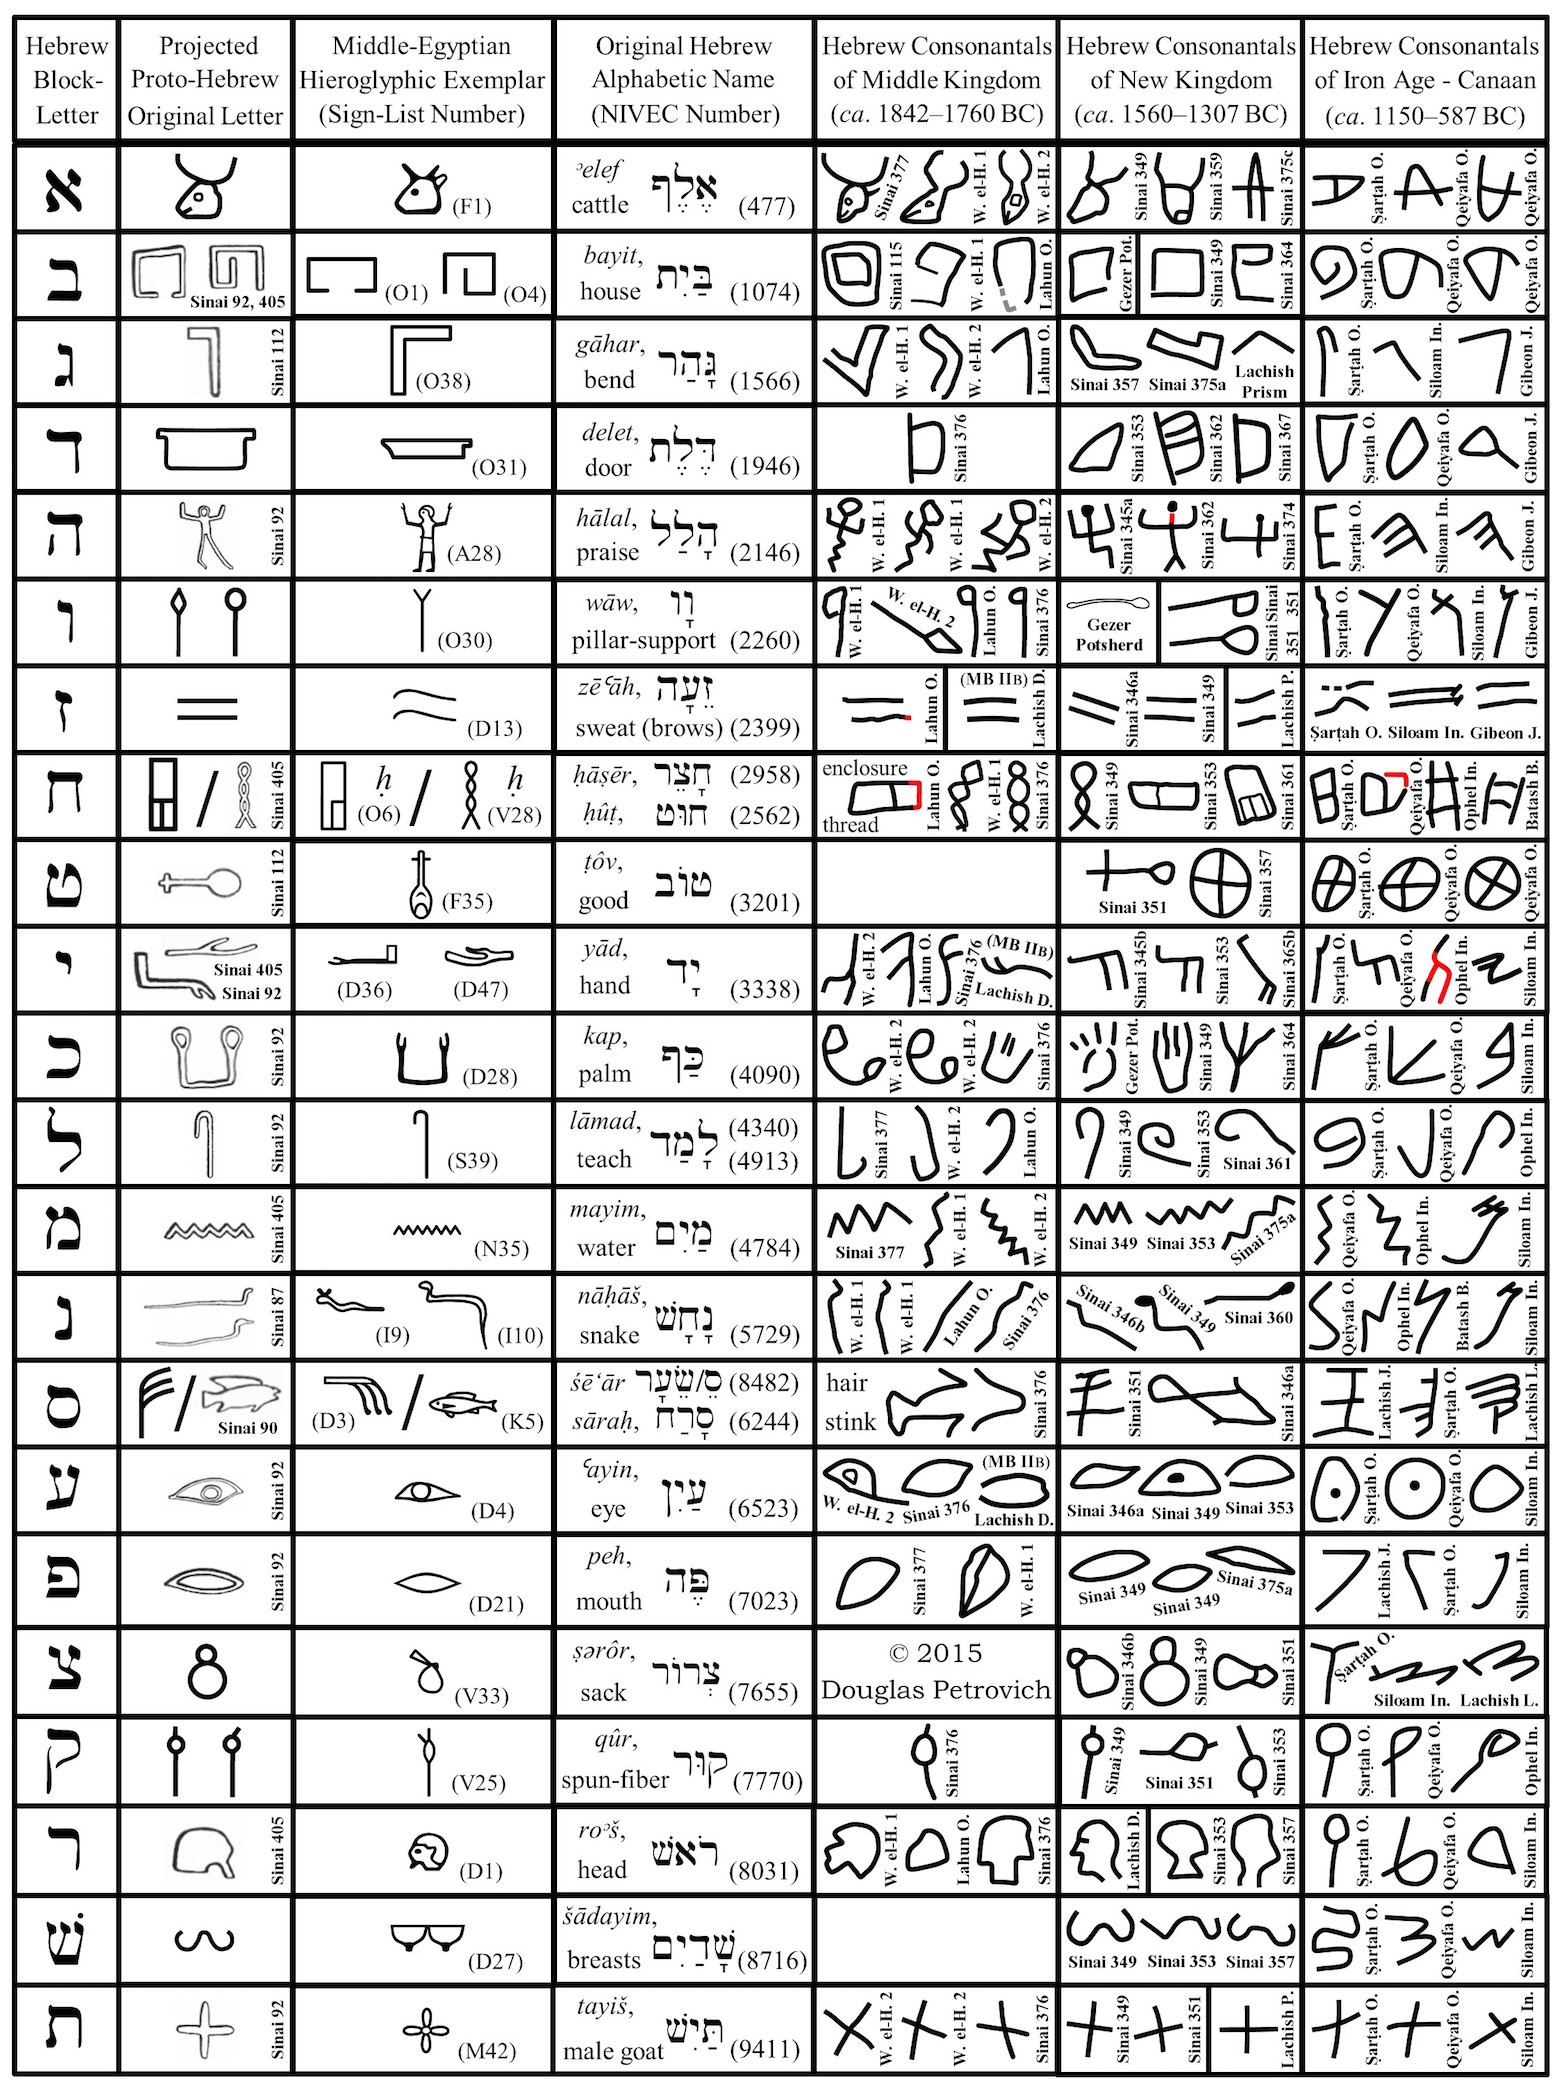 Hebrew Block-Letter
Projected Proto-Hebrew Original Letter
Middle-Egyptian Hieroglyphic Exemplar (Sign-List Number)
Original Hebrew Alphabetic Name (NIVEC Number)
Hebrew Consonantals of Middle Kingdom (ca. 1842–1760 BC)
Hebrew Consonantals of New Kingdom (ca. 1560–1307 BC)
Hebrew Consonantals of Iron Age - Canaan (ca. 1150–587 BC)
א
(F1)
ʾelef אֶלֶף
cattle (477)
Sinai 377 W. el-H. 1 W. el-H. 2
Sinai 349 Sinai 359 Sinai 375c
Ṣarṭah O. Qeiyafa O. Qeiyafa O.
ב
Sinai 92, 405
(O1) (O4)
bayit, בַּיִת
house (1074)
Sinai 115 W. el-H. 1 Lahun O.
Gezer Pot. Sinai 349 Sinai 364
Ṣarṭah O. Qeiyafa O. Qeiyafa O.
ג
Sinai 112
(O38)
gāhar, גָּהַר
bend (1566)
W. el-H. 1 W. el-H. 2 Lahun O.
Sinai 357 Sinai 375a Lachish Prism
Ṣarṭah O. Siloam In. Gibeon J.
ד
(O31)
delet, דֶּלֶת
door (1946)
Sinai 376
Sinai 353 Sinai 362 Sinai 367
Ṣarṭah O. Qeiyafa O. Gibeon J.
ה
Sinai 92
(A28)
hālal, הָלַל
praise (2146)
W. el-H. 1 W. el-H. 1 W. el-H. 2
Sinai 345a Sinai 362 Sinai 374
Ṣarṭah O. Siloam In. Gibeon J.
ו
(O30)
wāw, וָו
pillar-support (2260)
W. el-H. 1 W. el-H. 2 Lahun O. Sinai 376
Gezer Potsherd Sinai 351 Sinai 351
Ṣarṭah O. Qeiyafa O. Siloam In. Gibeon J.
ז
(D13)
zēʿāh, זֵעָה
sweat (brows) (2399)
Lahun O. (MB IIB) Lachish D.
Sinai 346a Sinai 349 Lachish P.
Ṣarṭah O. Siloam In. Gibeon J.
ח
/ Sinai 405
ḥ (O6) / ḥ (V28)
ḥāṣēr, חָצֵר (2958)
ḥûṭ, חוּט (2562)
enclosure Lahun O. W. el-H. 1 Sinai 376
thread
Sinai 349 Sinai 353 Sinai 361
Ṣarṭah O. Qeiyafa O. Ophel In. Batash B.
ט
Sinai 112
(F35)
ṭôv, טוֹב
good (3201)
Sinai 351 Sinai 357
Ṣarṭah O. Qeiyafa O. Qeiyafa O.
י
Sinai 405
Sinai 92
(D36) (D47)
yād, יָד
hand (3338)
W. el-H. 2 Lahun O. Sinai 376 (MB IIB) Lachish D.
Sinai 345b Sinai 353 Sinai 365b
Ṣarṭah O. Qeiyafa O. Ophel In. Siloam In.
כ
Sinai 92
(D28)
kap, כַּף
palm (4090)
W. el-H. 2 W. el-H. 2 Sinai 376
Gezer Pot. Sinai 349 Sinai 364
Ṣarṭah O. Qeiyafa O. Siloam In.
ל
Sinai 92
(S39)
lāmad, לָמַד (4340)
teach (4913)
Sinai 377 W. el-H. 2 Lahun O.
Sinai 349 Sinai 353 Sinai 361
Ṣarṭah O. Qeiyafa O. Ophel In.
מ
Sinai 405
(N35)
mayim, מַיִם
water (4784)
Sinai 377 W. el-H. 1 W. el-H. 2
Sinai 349 Sinai 353 Sinai 375a
Qeiyafa O. Ophel In. Siloam In.
נ
Sinai 87
(I9) (I10)
nāḥāš, נָחָשׁ
snake (5729)
W. el-H. 1 W. el-H. 1 Lahun O. Sinai 376
Sinai 346b Sinai 349 Sinai 360
Qeiyafa O. Ophel In. Batash B. Siloam In.
ס
/ Sinai 90
(D3) / (K5)
śēʿār סֵ/שֵׂעָר (8482)
sāraḥ, סָרַח (6244)
hair Sinai 376
stink
Sinai 351 Sinai 346a
Lachish J. Ṣarṭah O. Lachish L.
ע
Sinai 92
(D4)
ʿayin, עַיִן
eye (6523)
W. el-H. 2 Sinai 376 (MB IIB) Lachish D.
Sinai 346a Sinai 349 Sinai 353
Ṣarṭah O. Qeiyafa O. Siloam In.
פ
Sinai 92
(D21)
peh, פֶּה
mouth (7023)
Sinai 377 W. el-H. 1
Sinai 349 Sinai 349 Sinai 375a
Lachish J. Ṣarṭah O. Siloam In.
צ
(V33)
ṣərôr, צְרוֹר
sack (7655)
© 2015
Douglas Petrovich
Sinai 346b Sinai 349 Sinai 351
Ṣarṭah O. Siloam In. Lachish L.
ק
(V25)
qûr, קוּר
spun-fiber (7770)
Sinai 376
Sinai 349 Sinai 351 Sinai 353
Ṣarṭah O. Qeiyafa O. Ophel In.
ר
Sinai 405
(D1)
roʾš, רֹאשׁ
head (8031)
W. el-H. 1 Lahun O. Sinai 376
Lachish D. Sinai 353 Sinai 357
Ṣarṭah O. Qeiyafa O. Siloam In.
שׁ
(D27)
šādayim, שָׁדַיִם
breasts (8716)
Sinai 349 Sinai 353 Sinai 357
Ṣarṭah O. Qeiyafa O. Siloam In.
ת
Sinai 92
(M42)
tayiš, תַּיִשׁ
male goat (9411)
W. el-H. 2 W. el-H. 2 Sinai 376
Sinai 349 Sinai 351 Lachish P.
Ṣarṭah O. Qeiyafa O. Siloam In.